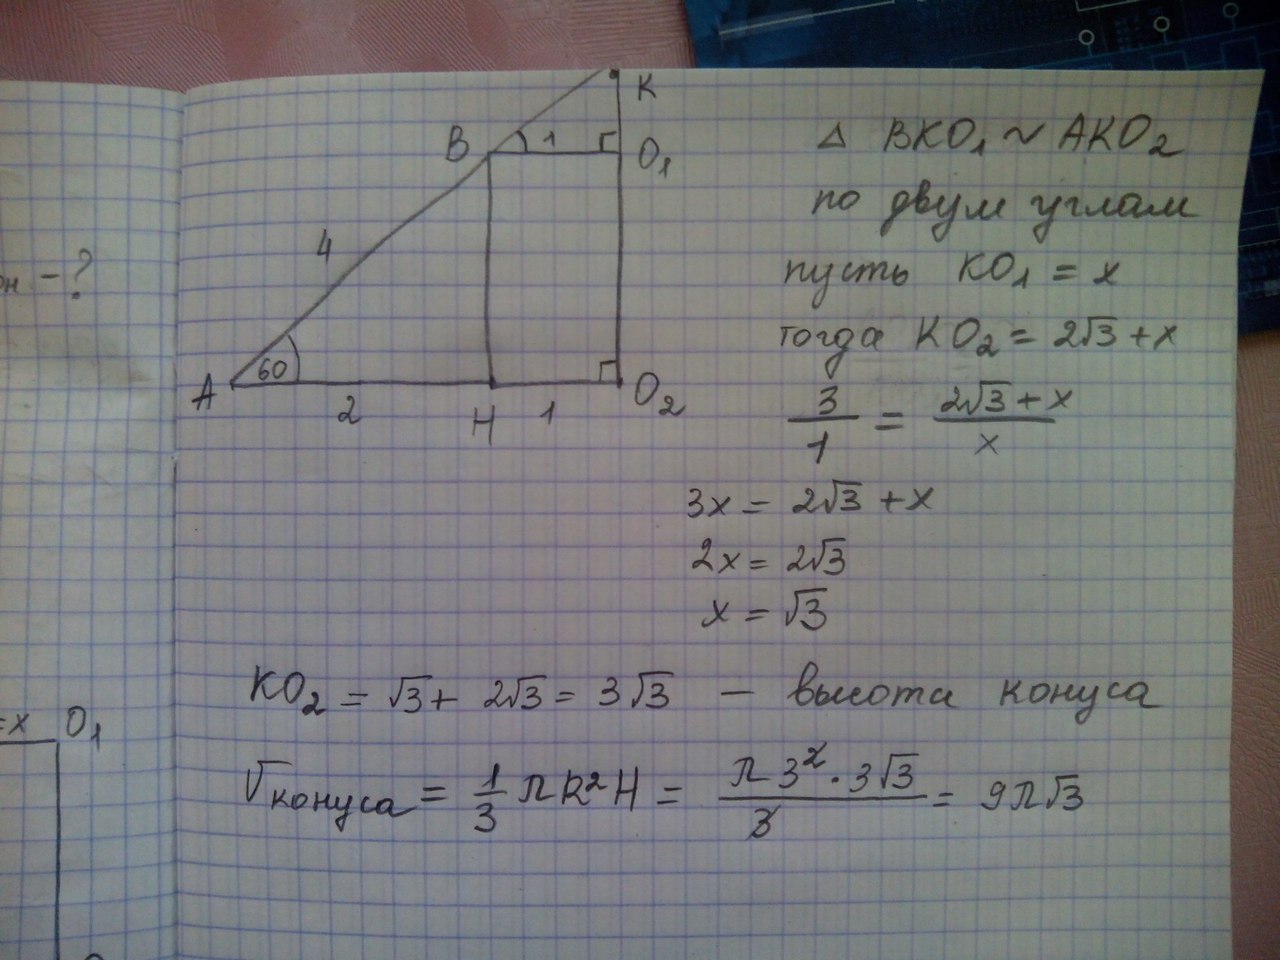 K
B 1 O₁
4
A 60 2 H 1 O₂
△ BKO₁ ~ AKO₂
по двум углам
пусть KO₁ = x
тогда KO₂ = 2√3 + x
3/1 = (2√3 + x)/x
3x = 2√3 + x
2x = 2√3
x = √3
KO₂ = √3 + 2√3 = 3√3 — высота конуса
Vконуса = 1/3 πR²H = (π3² · 3√3)/3 = 9π√3
- ?
=x O₁